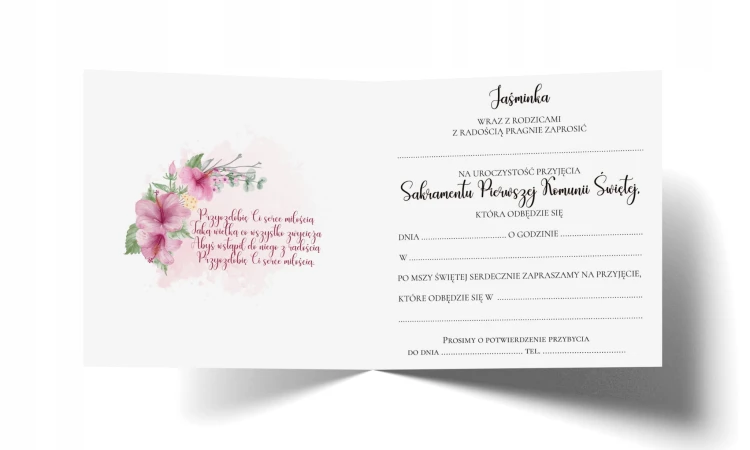 Przyozdobię Ci serce miłością
Taką wielką co wszystko zwycięża
Abyś wstąpił do niego z radością
Przyozdobię Ci serce miłością.
Jaśminka
WRAZ Z RODZICAMI
Z RADOŚCIĄ PRAGNIE ZAPROSIĆ
NA UROCZYSTOŚĆ PRZYJĘCIA
Sakramentu Pierwszej Komunii Świętej,
KTÓRA ODBĘDZIE SIĘ
DNIA ........................... O GODZINIE ...........................
W ...........................
PO MSZY ŚWIĘTEJ SERDECZNIE ZAPRASZAMY NA PRZYJĘCIE,
KTÓRE ODBĘDZIE SIĘ W ...........................
PROSIMY O POTWIERDZENIE PRZYBYCIA
DO DNIA ........................... TEL. ...........................